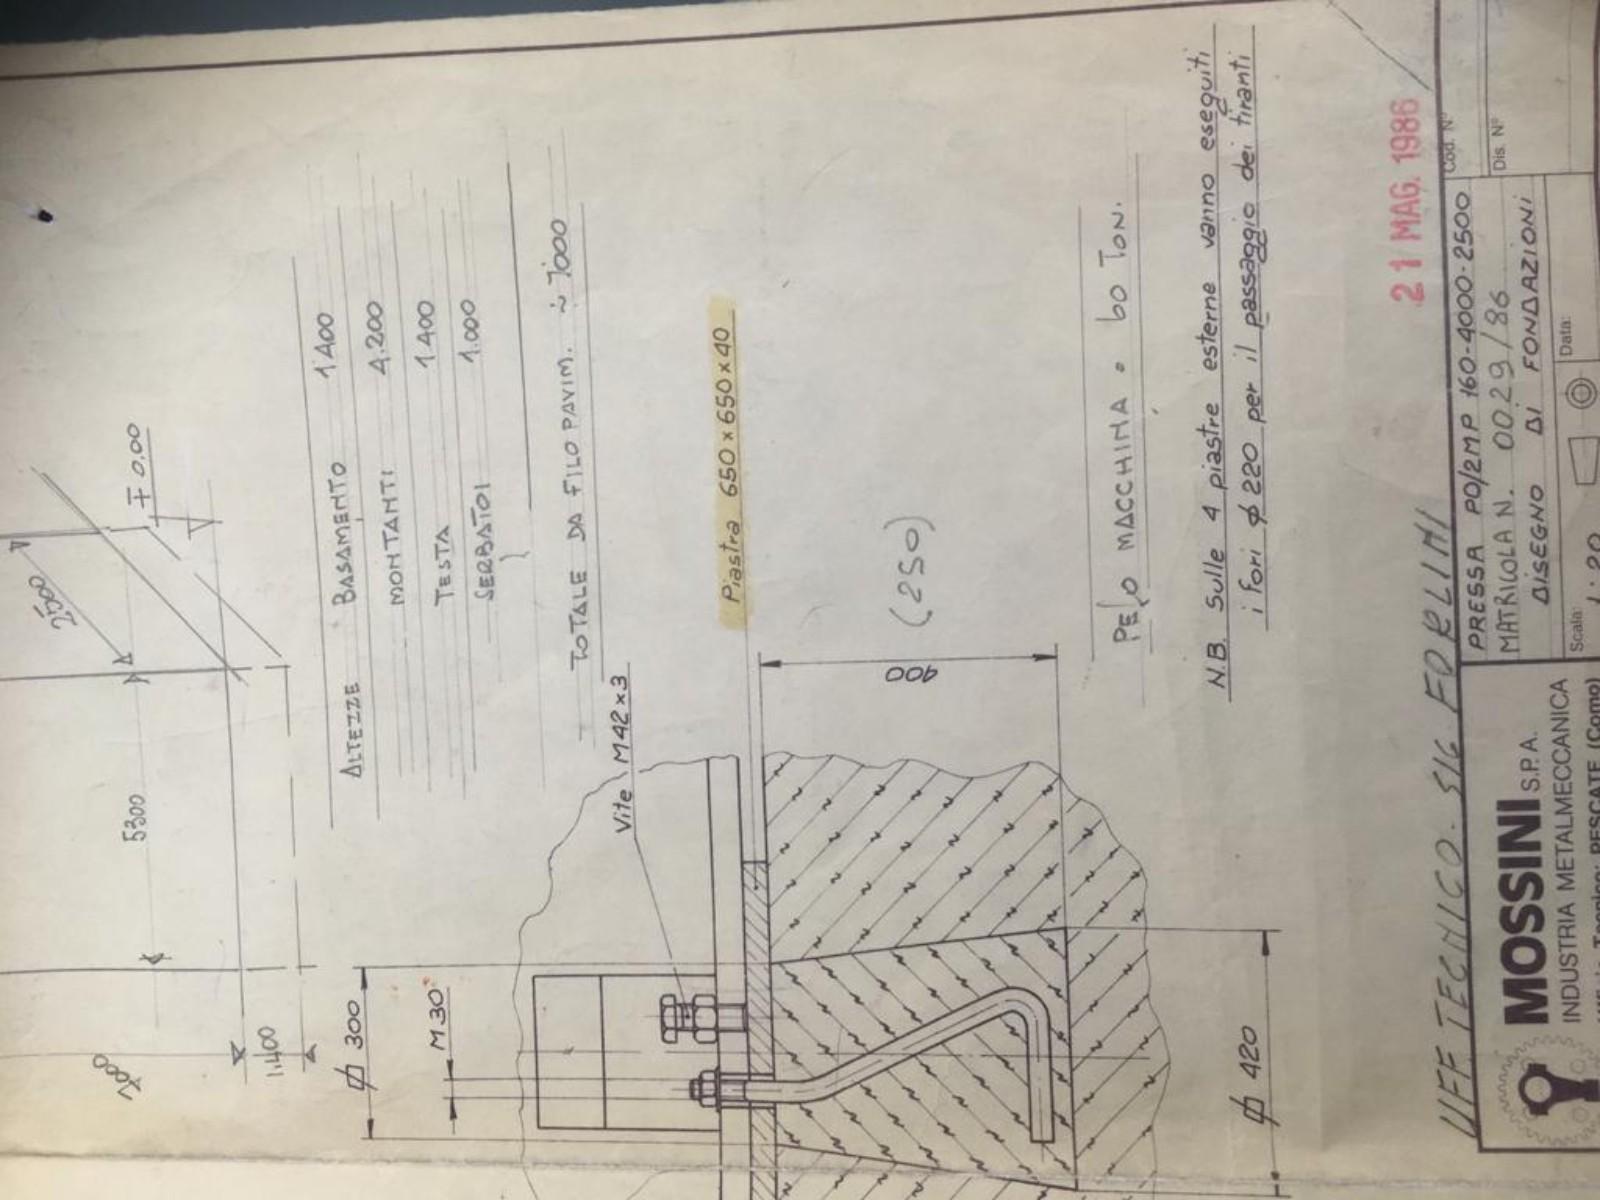 2500
∓ 0.00
5300
7000
1.400
ALTEZZE BASAMENTO 1400
MONTANTI 4.200
TESTA 1.400
SERBATOI 1.000
TOTALE DA FILO PAVIM. ~ 7000
Vite M42x3
Piastra 650x650x40
ϕ 300
M30
400
(250)
ϕ 420
PESO MACCHINA • 60 TON.
N.B. Sulle 4 piastre esterne vanno eseguiti
i fori ϕ 220 per il passaggio dei tiranti
21 MAG. 1986
UFF TECNICO. SIG FORLINI
MOSSINI S.P.A.
INDUSTRIA METALMECCANICA
PESCATE (Como)
PRESSA PO/2MP 160-4000-2500
MATRICOLA N. 0029/86
DISEGNO DI FONDAZIONI
Scala: 1:20
Data:
Cod. N°
Dis. N°